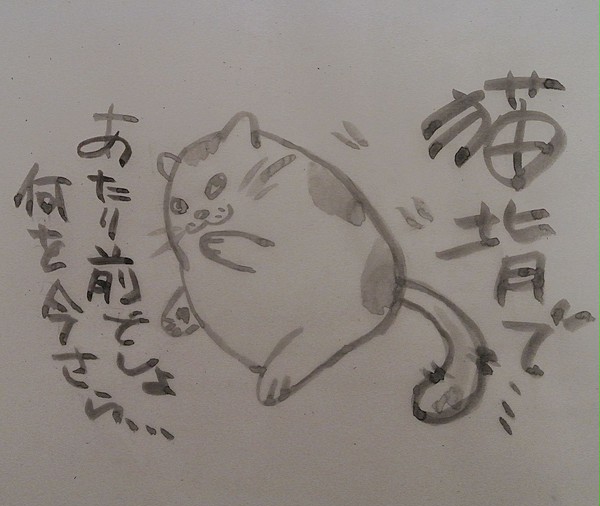 猫背で…
あたり前でしょ
何を今さら…